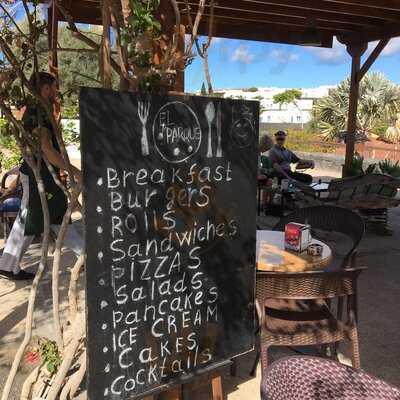 EL
PARQUE
Breakfast
. Burgers
. ROLLS
. Sandwiches
. PIZZAS
. Salads
. pancakes
. ICE CREAM
. CAKES
. Cocktails